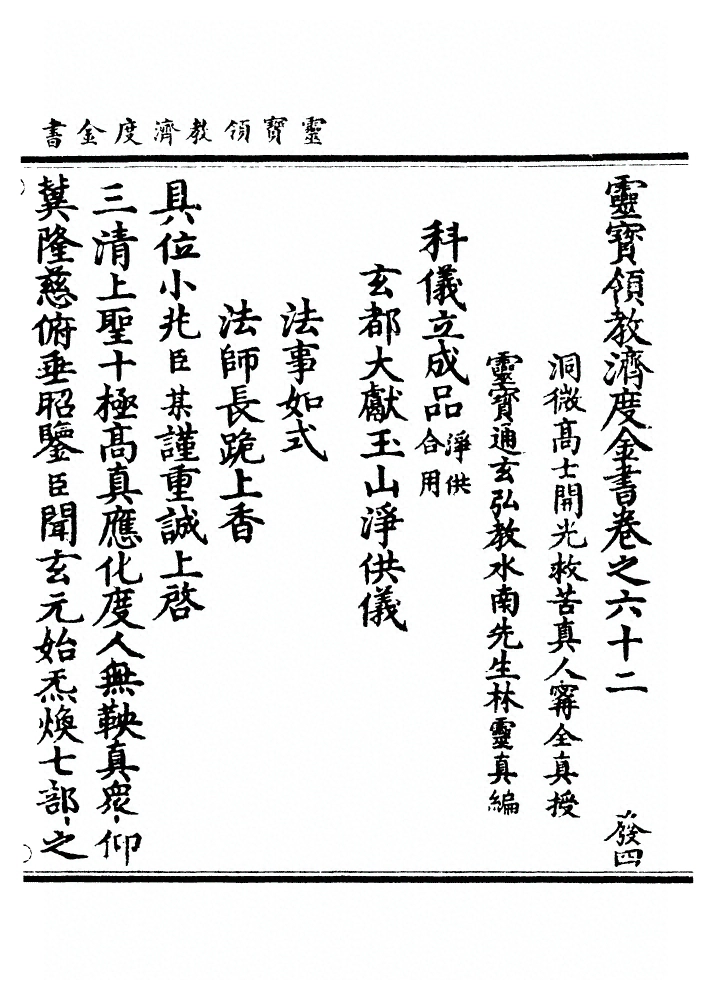 靈寶領教濟度金書
靈寶領教濟度金書卷之六十二 發四
洞微高士開光救苦真人寗全真授
靈寶通玄弘教水南先生林靈真編
科儀立成品 淨供合用
玄都大獻玉山淨供儀
法事如式
法師長跪上香
具位小兆臣某謹重誠上啓
三清上聖十極高真應化度人無鞅真衆仰
冀隆慈俯垂昭鑒臣聞玄元始炁煥七部之